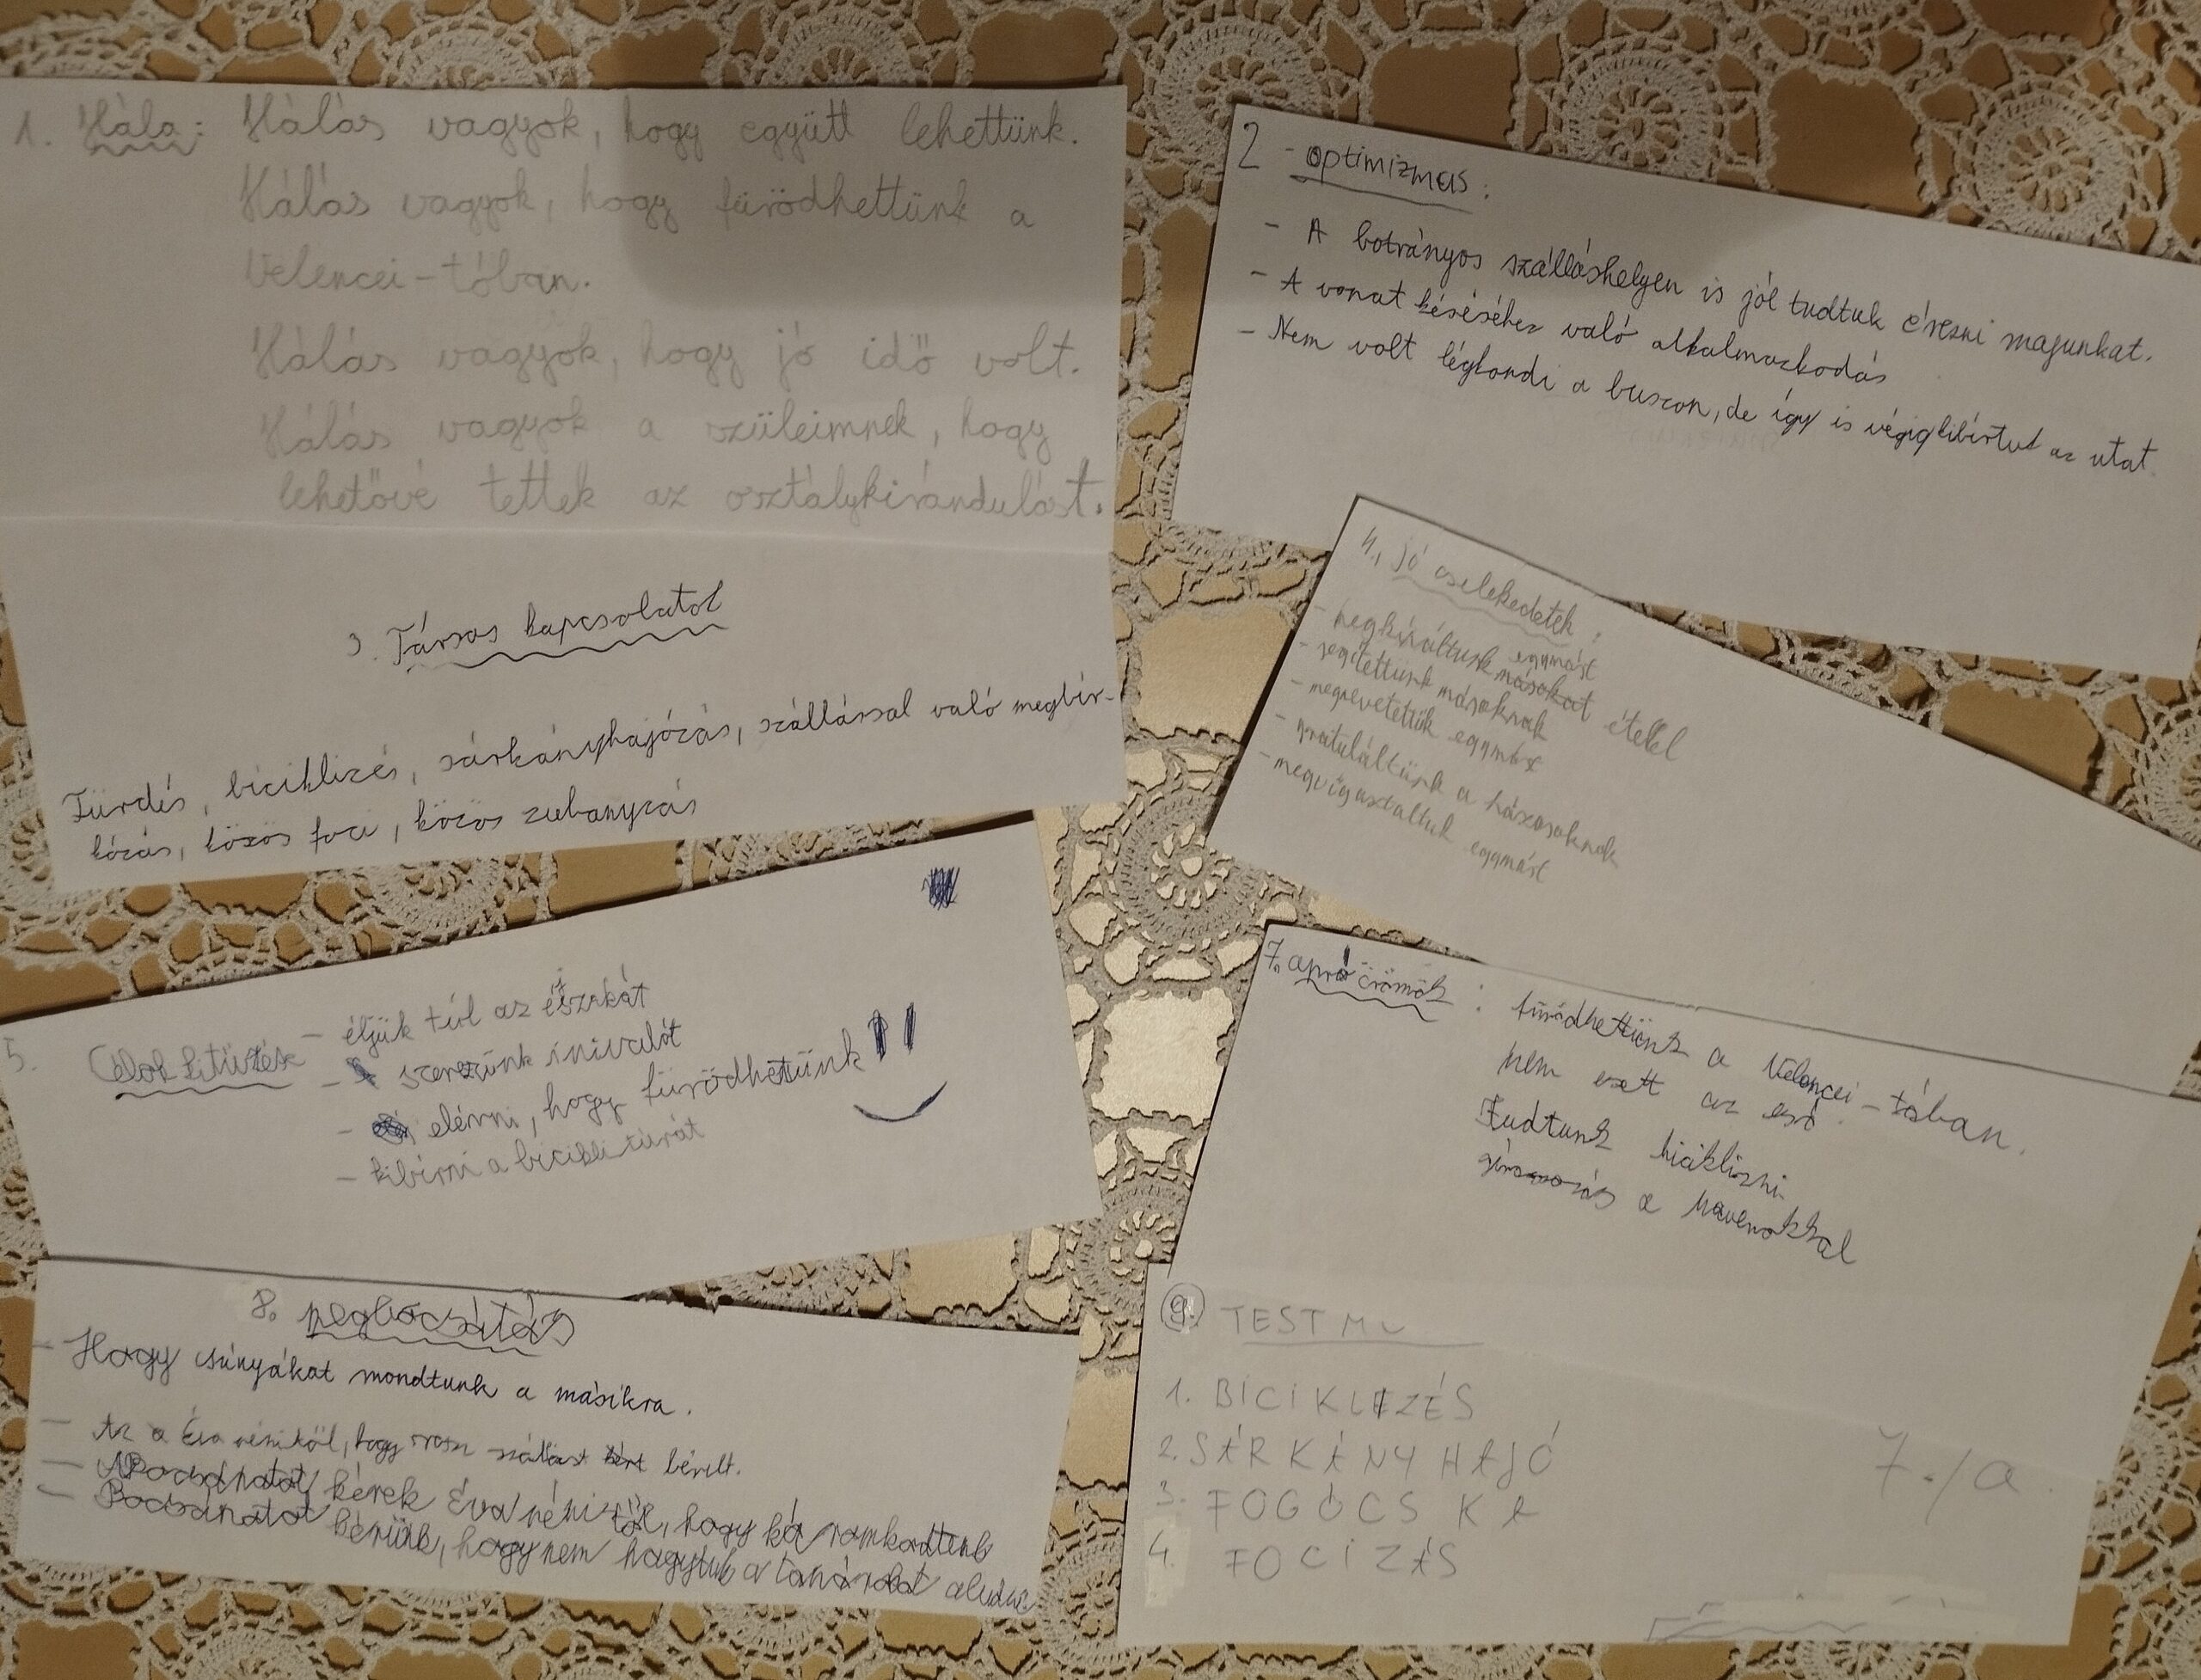 1. Hála: Hálás vagyok, hogy együtt lehettünk.
Hálás vagyok, hogy fürödhettünk a
Velencei-tóban.
Hálás vagyok, hogy jó idő volt.
Hálás vagyok a szüleimnek, hogy
lehetővé tettek az osztálykirándulást.
2 - optimizmus:
- A botrányos szálláshelyen is jól tudtuk érezni magunkat.
- A vonat késéséhez való alkalmazkodás
- Nem volt légkondi a buszon, de így is végigkibírtuk az utat.
3. Társas kapcsolatok
Fürdés, biciklizés, sárkányhajózás, szállással való megbir-
kózás, közös foci, közös zuhanyzás
4., jó cselekedetek:
- megkínáltunk másokat egymást étellel
- segítettünk másoknak
- megnevetettük egymást
- gratuláltunk a házasoknak
- megvigasztaltuk egymást
5. Célok kitűzése - éljük túl az éjszakát
- szerezzünk innivalót
- elérni, hogy fürödhettünk !!
- kibírni a bicikli túrát
7. apró örömök: fürödhettünk a Velencei-tóban.
nem esett az eső.
Tudtunk biciklizni.
a
8. megbocsátás
- Hogy csúnyákat mondtunk a másikra.
- Az a Éva nénitől, hogy rossz szállást bérelt.
- Bocsánatot kérek Éva nénitől, hogy káromkodtunk
- Bocsánatot kérünk, hogy nem hagytuk a tanárokat aludni
9. TESTM
1. BICIKLIZÉS
2. SÁRKÁNYHAJÓ
3. FOGÓCSKA
4. FOCIZÁS
7./a.